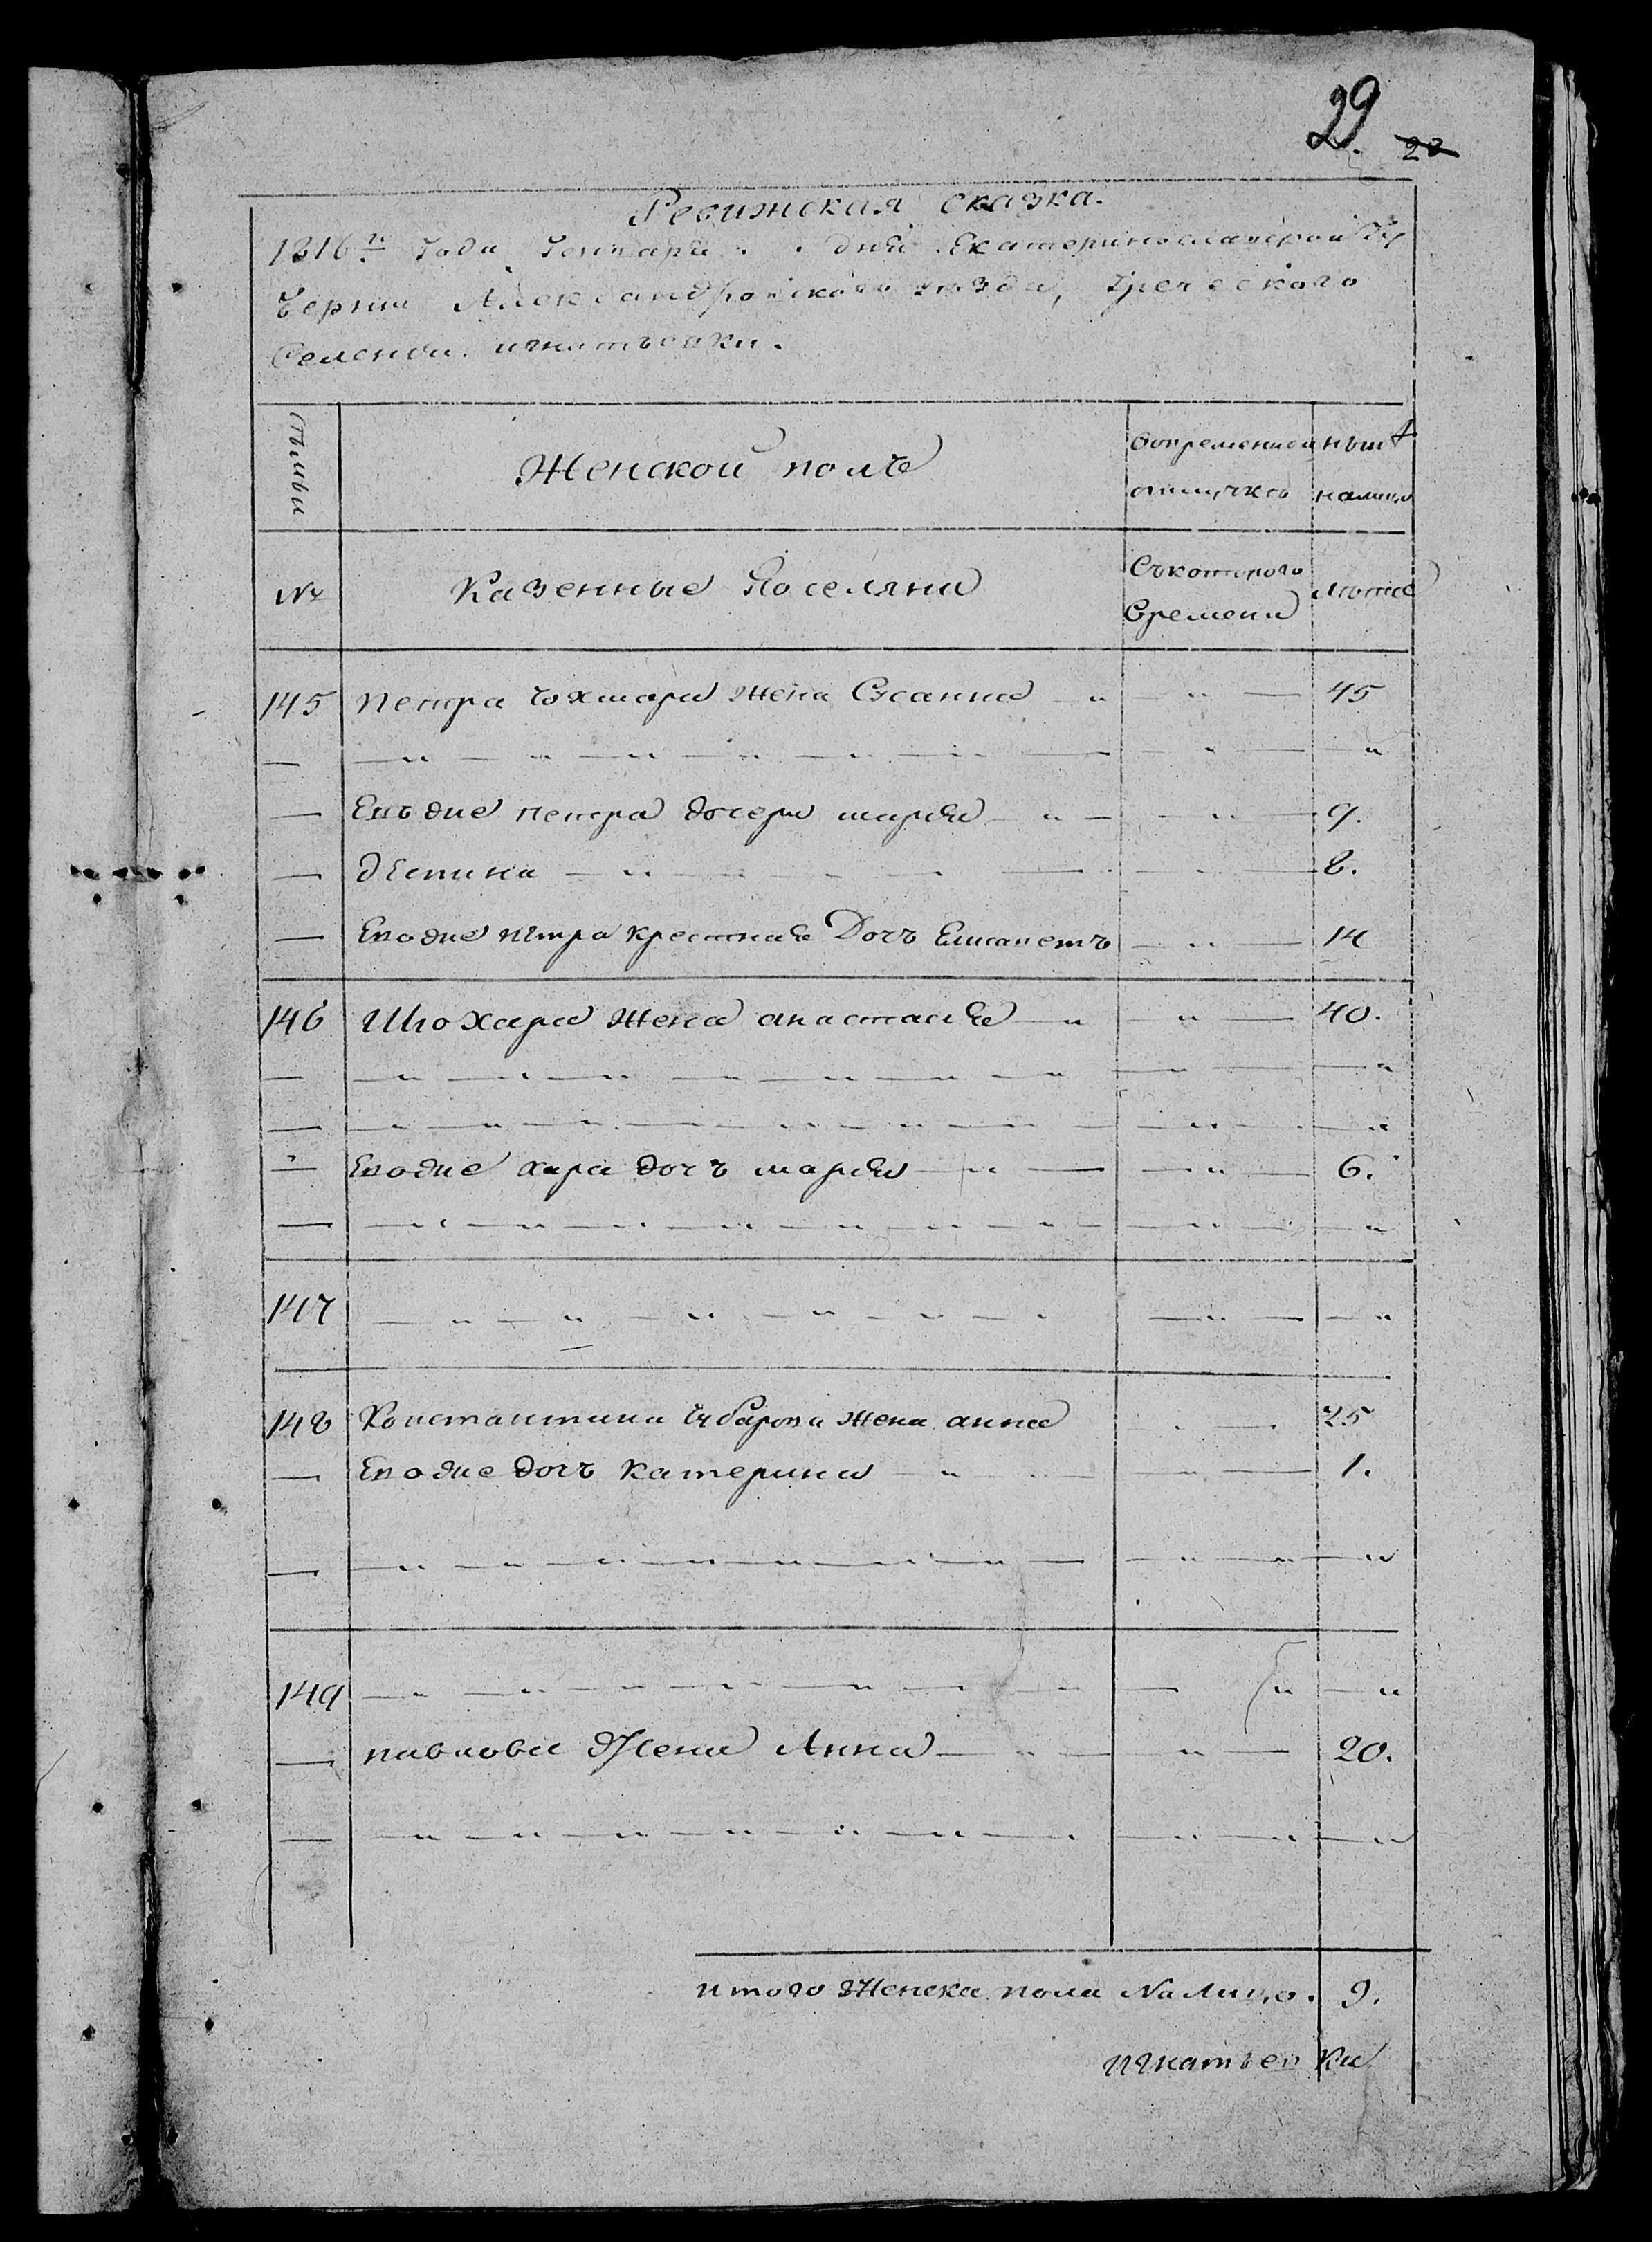 29. 28
Ревижская сказка.
1816го Года Генваря . . дня Екатеринославской Гу
берни Александровского уезда, Греческого
Селения игнатьевки.
Семьи
Женской поле
вовременной
отлучке
ныне
налицо
№
Казенные Поселяни
Съкоторого
Времени
лѣта
145 Петра жена Сусанна 45
Еводие петра дочери мария 9.
деспина 8.
Еводие петра крестная Дочъ Елисаветъ 14
146 жена анастасия 40.
Еводие хара дочъ мария 6.
147
148 Константина Чубарова жена анна 25
Еводие дочъ Катерина 1.
149
павлова Жена Анна 20.
итого Женска пола Налицо. 9.
игнатьевки